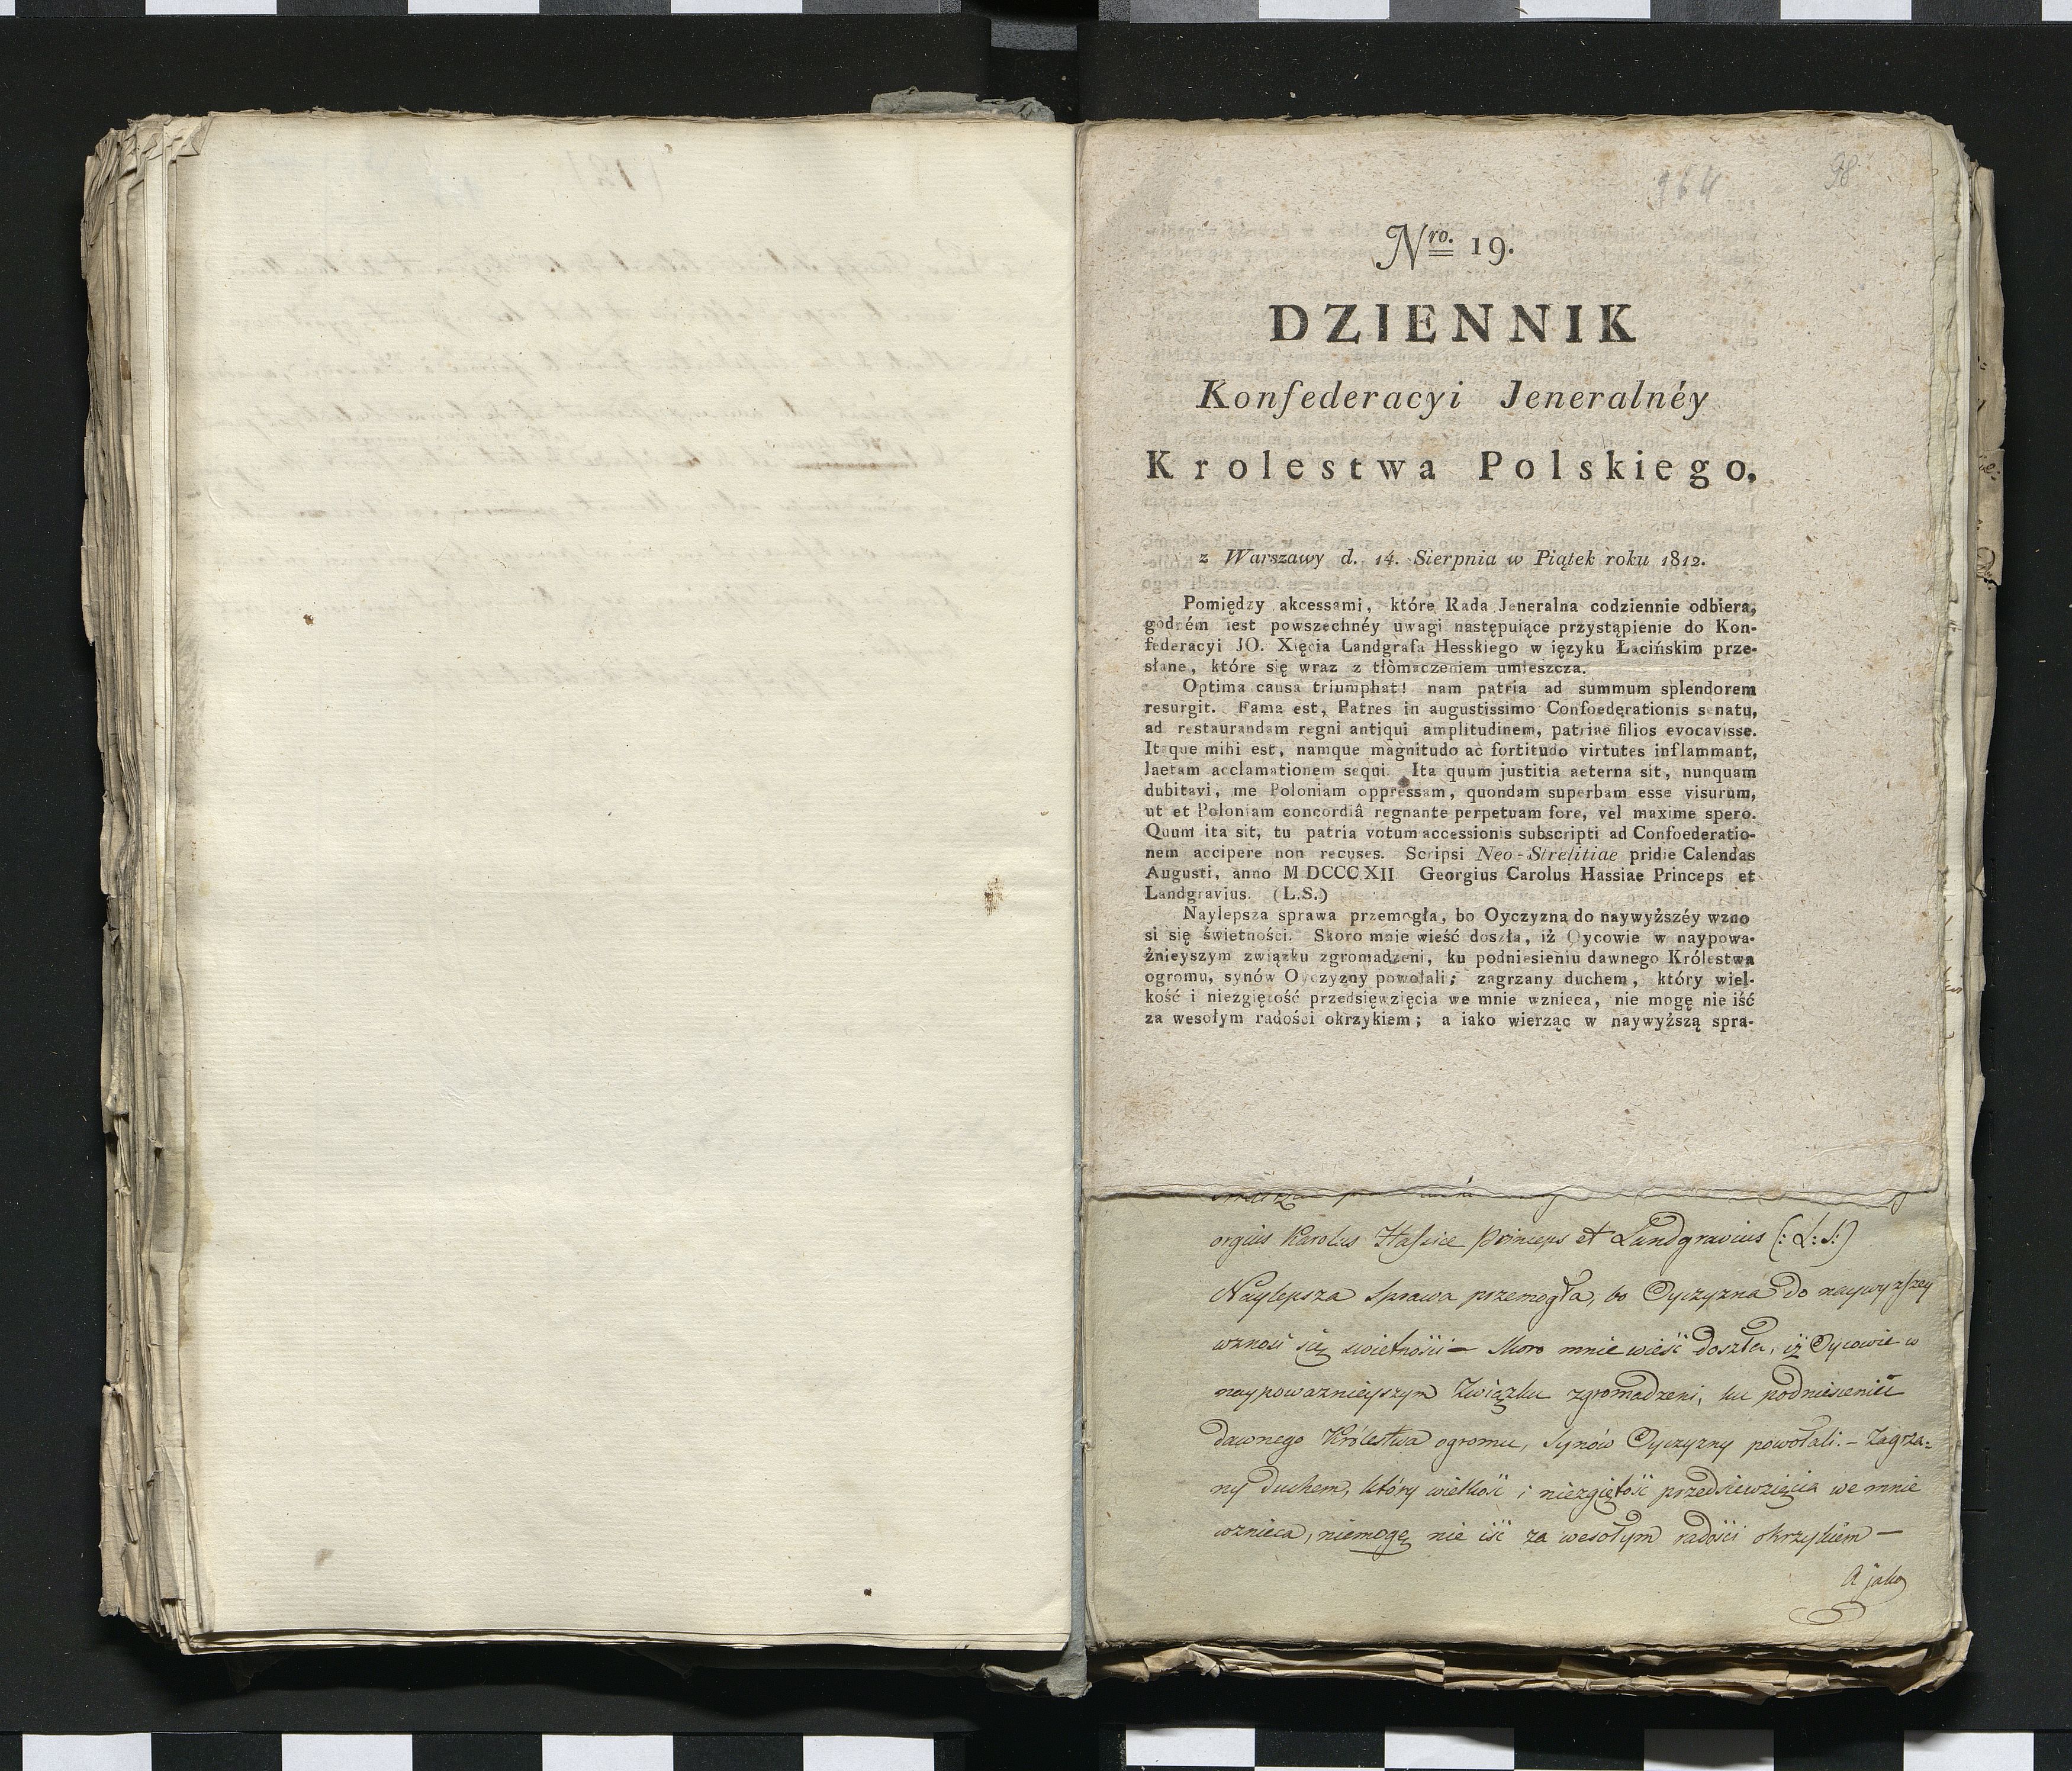 98
Nro. 19.
DZIENNIK
Konfederacyi Jeneralnéy
Krolestwa Polskiego,
z Warszawy d. 14. Sierpnia w Piątek roku 1812.
Pomiędzy akcessami, które Rada Jeneralna codziennie odbiera,
godném iest powszechnéy uwagi następuiące przystąpienie do Kon-
federacyi JO. Xięcia Landgrafa Hesskiego w ięzyku Łacińskim prze-
słane, które się wraz z tłòmaczeniem umieszcza.
Optima causa triumphat! nam patria ad summum splendorem
resurgit. Fama est, Patres in augustissimo Confoederationis senatu,
ad restaurandam regni antiqui amplitudinem, patriae filios evocavisse.
Itaque mihi est, namque magnitudo ac fortitudo virtutes inflammant,
laetam acclamationem sequi. Ita quum justitia aeterna sit, nunquam
dubitavi, me Poloniam oppressam, quondam superbam esse visurum,
ut et Poloniam concordiâ regnante perpetuam fore, vel maxime spero.
Quum ita sit, tu patria votum accessionis subscripti ad Confoederatio-
nem accipere non recuses. Scripsi Neo-Strelitiae pridie Calendas
Augusti, anno MDCCCXII Georgius Carolus Hassiae Princeps et
Landgravius. (L.S.)
Naylepsza sprawa przemogła, bo Oyczyzna do naywyższéy wzno
si się świetności. Skoro mnie wieść doszła, iż Oycowie w naypowa-
żnieyszym związku zgromadzeni, ku podniesieniu dawnego Królestwa
ogromu, synów Oyczyzny powołali; zagrzany duchem, który wiel-
kość i niezgiętość przedsięwzięcia we mnie wznieca, nie mogę nie iść
za wesołym radości okrzykiem; a iako wierząc w naywyższą spra-
orgius Karolus Hassiae Princeps et Landgravius (: L: S:)
Naylepsza Sprawa przemogła, bo Oyczyzna do naywyższey
wznosi się swietności – Skoro mnie wieść doszła, iż Oycowie w
naypoważnieyszym Związku zgromadzeni, ku podniesieniu
dawnego Królestwa ogromu, Synów Oyczyzny powołali. – Zagrza=
ny duchem, który wielkość i niezgiętość przedsiewzięcia we mnie
wznieca, niemogę nie iść za wesołym radości okrzykiem –
A jako